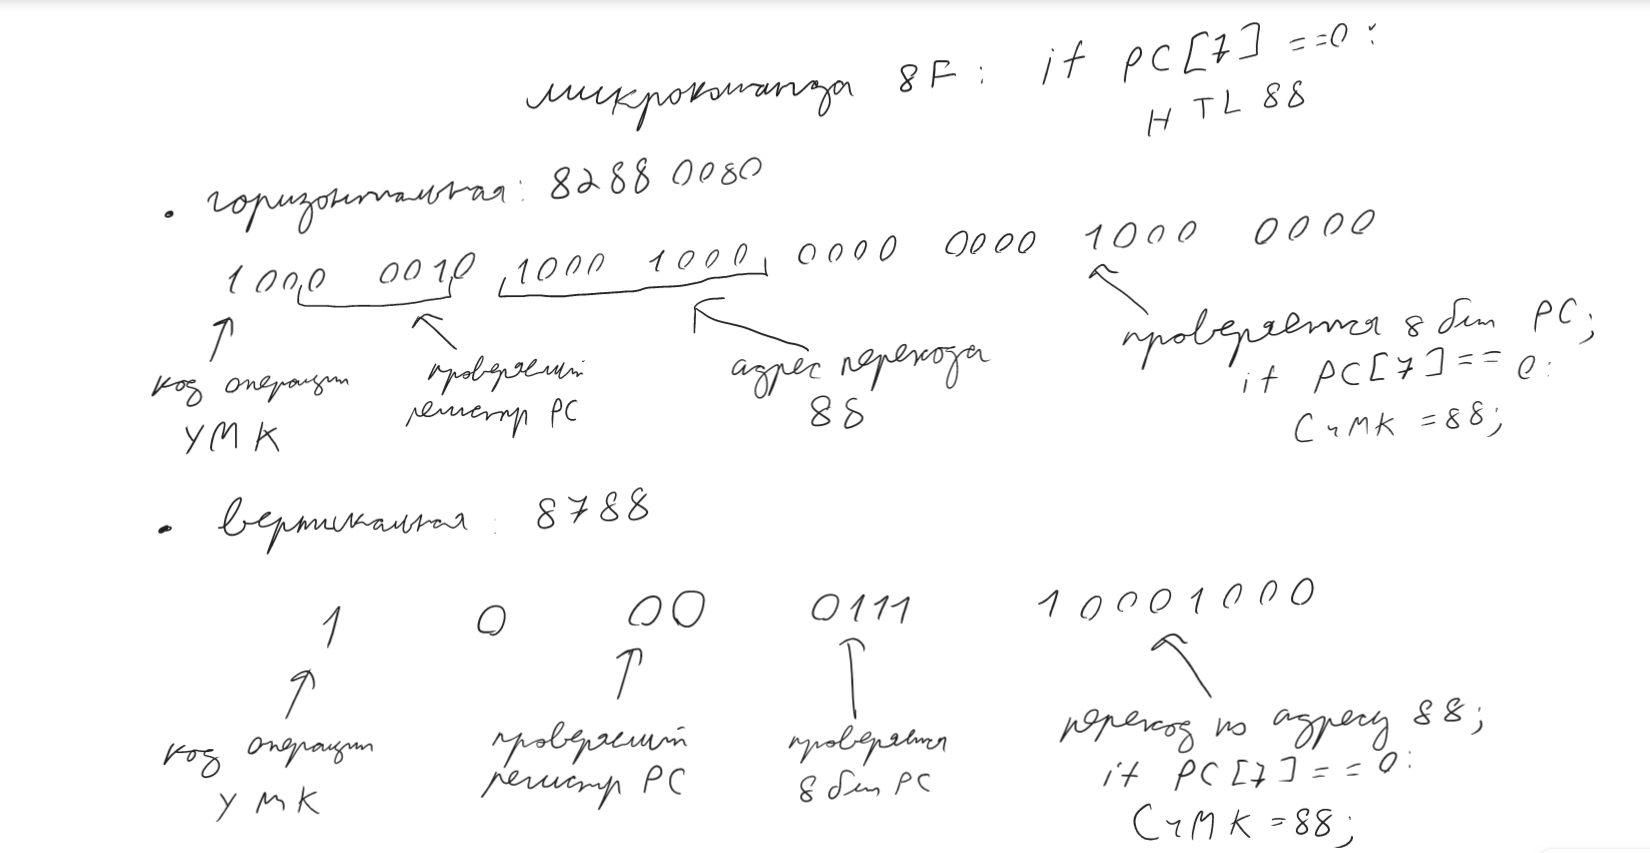 микрокоманда 8F: if PC[7]==0:
HTL 88
• горизонтальная: 8288 0080
1000 0010 1000 1000 0000 0000 1000 0000
код операции
УМК
проверяемый
регистр РС
адрес перехода
88
проверяется 8 бит РС;
if PC[7]==0:
СчМК=88;
• вертикальная: 8788
1 0 00 0111 10001000
код операции
УМК
проверяемый
регистр РС
проверяется
8 бит РС
переход по адресу 88;
if PC[7]==0:
СчМК=88;